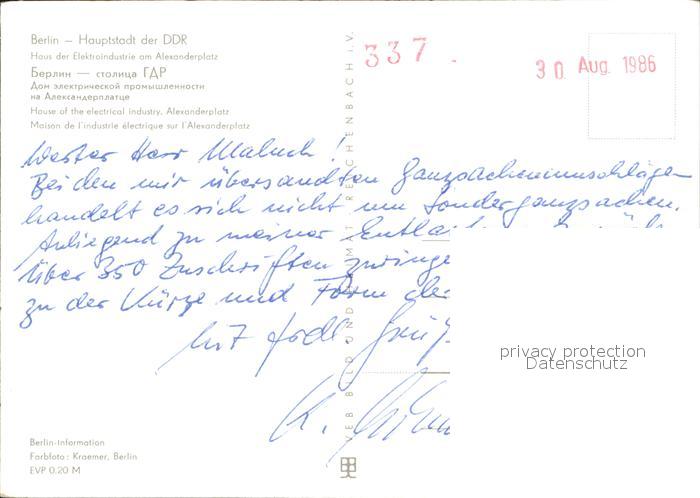 Berlin — Hauptstadt der DDR
Haus der Elektroindustrie am Alexanderplatz
Берлин — столица ГДР
Дом электрической промышленности
на Александерплатце
House of the electrical industry, Alexanderplatz
Maison de l'industrie électrique sur l'Alexanderplatz
337.
30. Aug. 1986
Werter Herr Maluch!
Bei den mir übersandten Ganzsachenumschlägen
handelt es sich nicht um Sonderganzsachen.
Anliegend zu meiner Entla
Über 350 Zuschriften zwinge
zu der Kürze und Form de
Mit frdl. Grüß
K.
privacy protection
Datenschutz
VEB BILD UND HEIMAT REICHENBACH I.V.
Berlin-Information
Farbfoto: Kraemer, Berlin
EVP 0.20 M